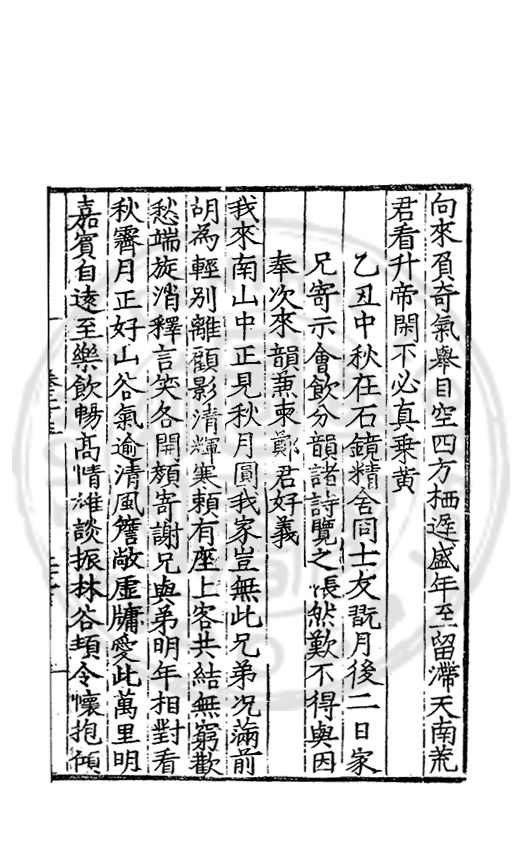 向來負奇氣舉目空四方栖遲盛年至留滯天南荒
君看升帝閑不必真乗黄
乙丑中秋在石鏡精舍同士友翫月後二日家
兄寄示會飲分韻諸詩覽之悵然歎不得與因
奉次來韻蕪柬鄭君好義
我來南山中正見秋月圓我家豈無此兄弟况滿前
胡為輕别離顧影清輝寒頼有座上客共結無窮歡
愁端旋消釋言笑各開顔寄謝兄與弟明年相對看
秋霽月正好山谷氣逾清風簷敞虛牗愛此萬里明
嘉賓自逺至樂飲暢髙情雄談振林谷頓令懷抱傾